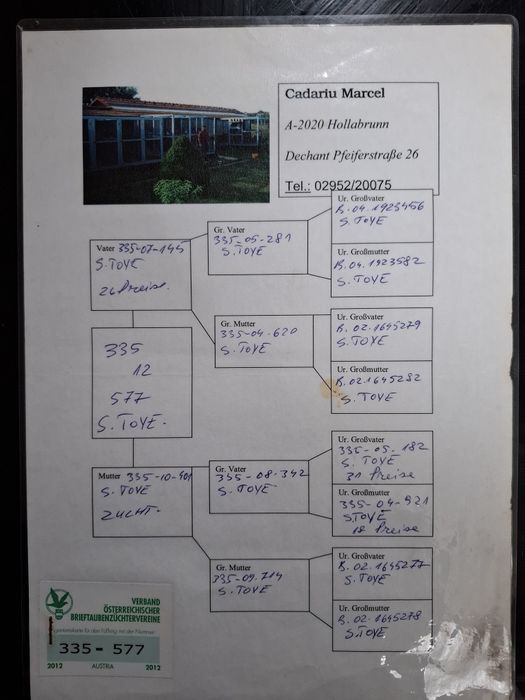 Cadariu Marcel
A-2020 Hollabrunn
Dechant Pfeiferstraße 26
Tel.: 02952/20075
Ur. Großvater
B.04.1923456
S. TOYE
Gr. Vater
335-05-281
S. TOYE
Vater 335-07-145
S. TOYE
26 Preise.
Ur. Großmutter
B.04.1923582
S. TOYE
Gr. Mutter
335-04-620
S. TOYE
Ur. Großvater
B. 02.1645279
S. TOYE
335
12
577
S. TOYE.
Ur. Großmutter
B.02.1645282
S. TOYE
Ur. Großvater
335-05-182
S. TOYE
31 Preise
Gr. Vater
335-08-342
S. TOYE
Mutter 335-10-401
S. TOYE
ZUCHT.
Ur. Großmutter
335-04-921
S.TOYE
18 Preise
Gr. Mutter
335-09.714
S. TOYE
Ur. Großvater
B.02.1645277
S. TOYE
Ur. Großmutter
B.02.1645278
S. TOYE
VERBAND
ÖSTERREICHISCHER
BRIEFTAUBENZÜCHTERVEREINE
für den Fußring mit der Nummer:
335 - 577
2012 AUSTRIA 2012